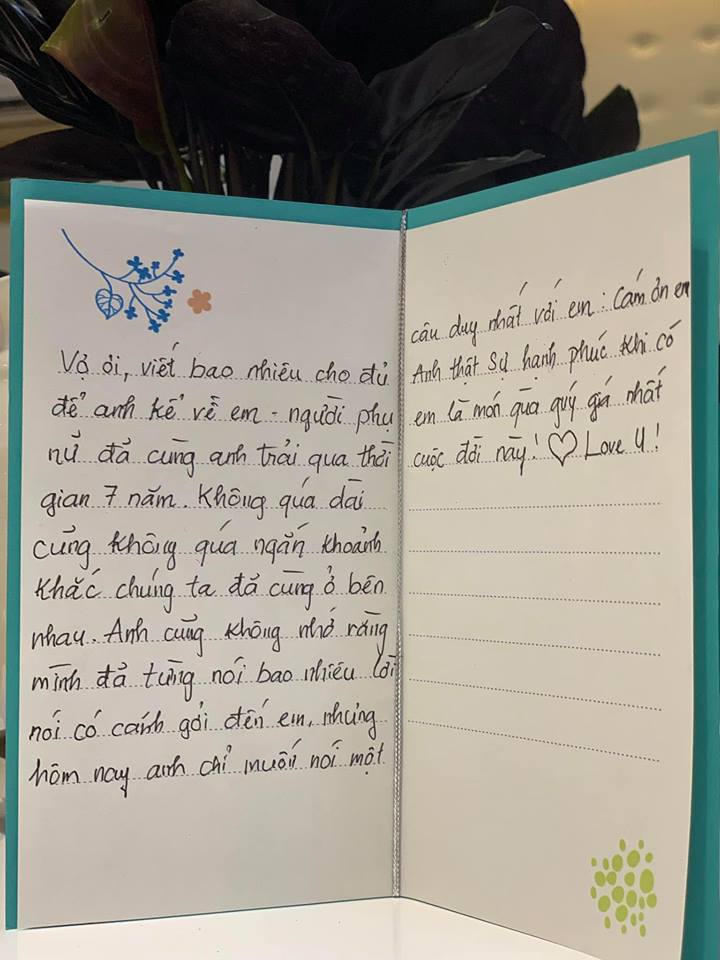 Vợ ơi, viết bao nhiêu cho đủ
để anh kể về em - người phụ
nữ đã cùng anh trải qua thời
gian 7 năm. Không quá dài
cũng không quá ngắn khoảnh
khắc chúng ta đã cùng ở bên
nhau. Anh cũng không nhớ rằng
mình đã từng nói bao nhiêu lời
nói có cánh gởi đến em, nhưng
hôm nay anh chỉ muốn nói một
câu duy nhất với em: Cám ơn em
Anh thật sự hạnh phúc khi có
em là món quà quý giá nhất
cuộc đời này! ♡ Love U!